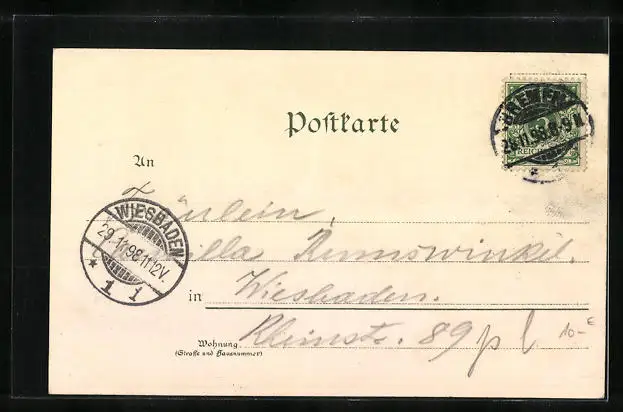 Postkarte
BREMEN
28.11.98.8-9N.
REICHSPOST
An
Fräulein,
WIESBADEN
29.11.98.11-12V.
1 i
in Wiesbaden.
Wohnung
(Straße und Hausnummer)
Rheinstr. 89 p l.
10-€